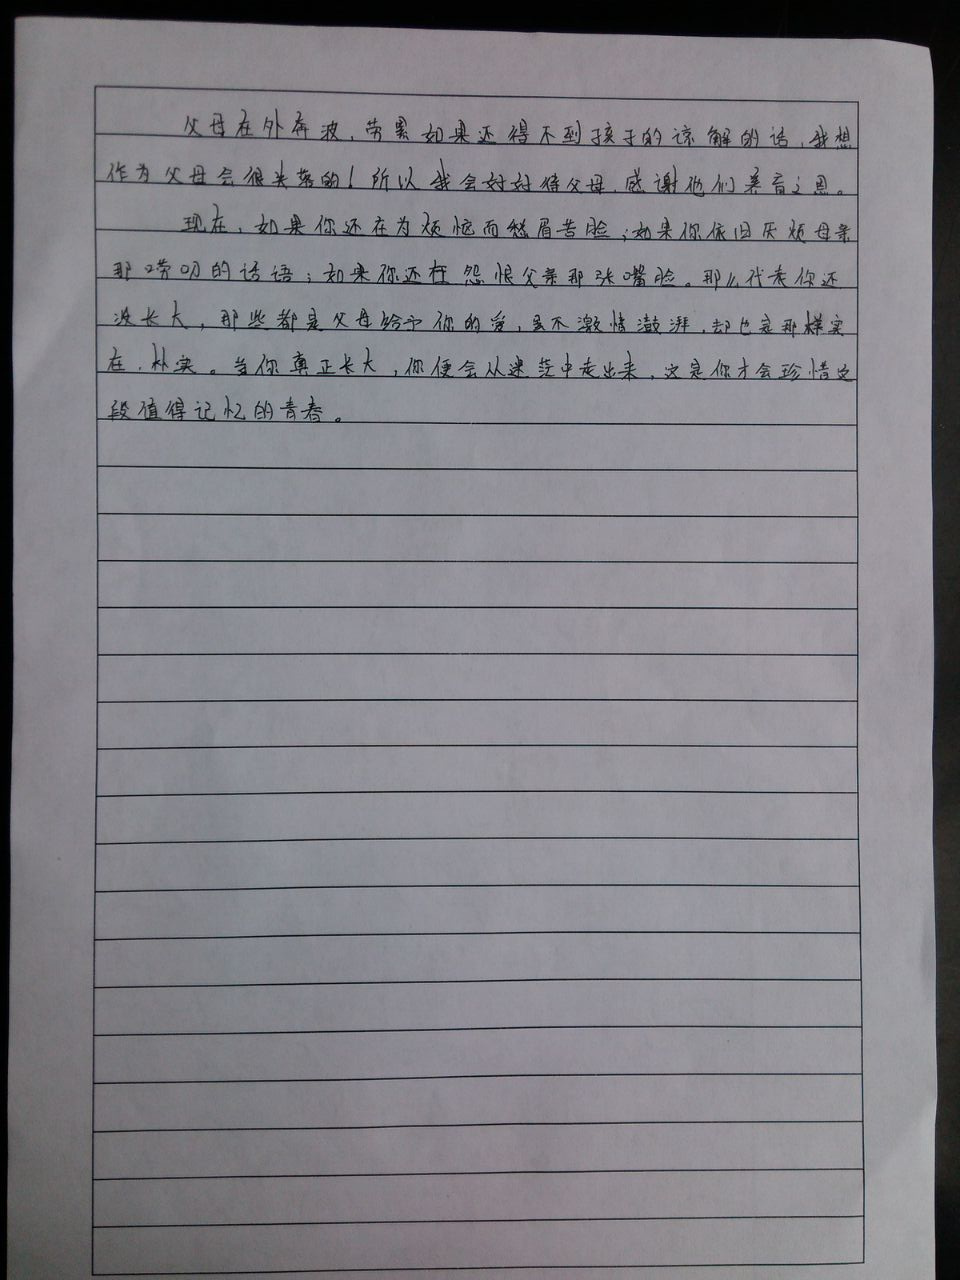 父母在外奔波，劳累如果还得不到孩子的谅解的话，我想
作为父母会很失落的！所以我会好好待父母，感谢他们养育之恩。
现在，如果你还在为烦恼而愁眉苦脸；如果你依旧厌烦母亲
那唠叨的话语；如果你还在怨恨父亲那张嘴脸。那么代表你还
没长大，那些都是父母给予你的爱，虽不激情澎湃，却也是那样实
在，朴实。当你真正长大，你便会从迷茫中走出来，这是你才会珍惜这
段值得记忆的青春。